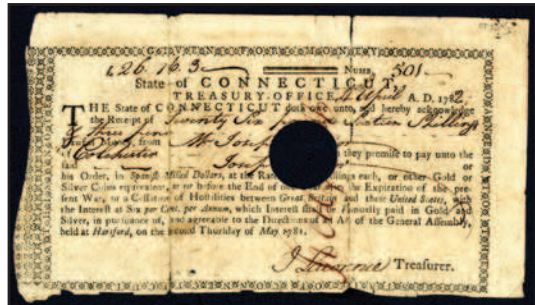 GIVEN FOR MONEY
£26.16.3 NUMB. 501
State of CONNECTICUT
TREASURY-OFFICE, April A. D. 1782
THE State of CONNECTICUT doth owe unto, and hereby acknowledge
the Receipt of Twenty Six pounds Sixteen Shillings
& three pence Money, from Mr Joseph
of Colchester they promise to pay unto the
said Joseph or
his Order, in Spanish Milled Dollars, at the Rate of Shillings each, or other Gold or
Silver Coins equivalent, at or before the End of one Year after the Expiration of the pre-
sent War, or a Cessation of Hostilities between Great-Britain and these United States, with
the Interest at Six per Cent. per Annum, which Interest shall be Annually paid in Gold and
Silver, in pursuance of, and agreeable to the Directions of an Act of the General Assembly,
held at Hartford, on the second Thursday of May 1781.
J Lawrence Treasurer.